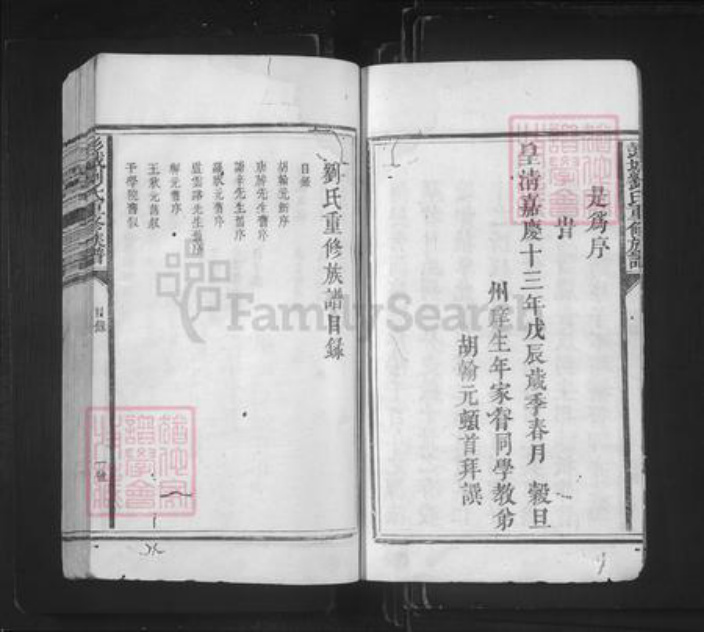 是為序
時
皇清嘉慶十三年戊辰歲季春月 穀旦
州庠生年家眷同學教弟
胡翰元頓首拜譔
劉氏重修族譜目錄
目錄
胡翰元新序
唐屏先生舊序
譜辛先生舊序
狀元舊序
盧雲路先生舊序
解元舊序
王狀元舊叙
于學院舊叙
彭城劉氏重修族譜
目錄
FamilySearch